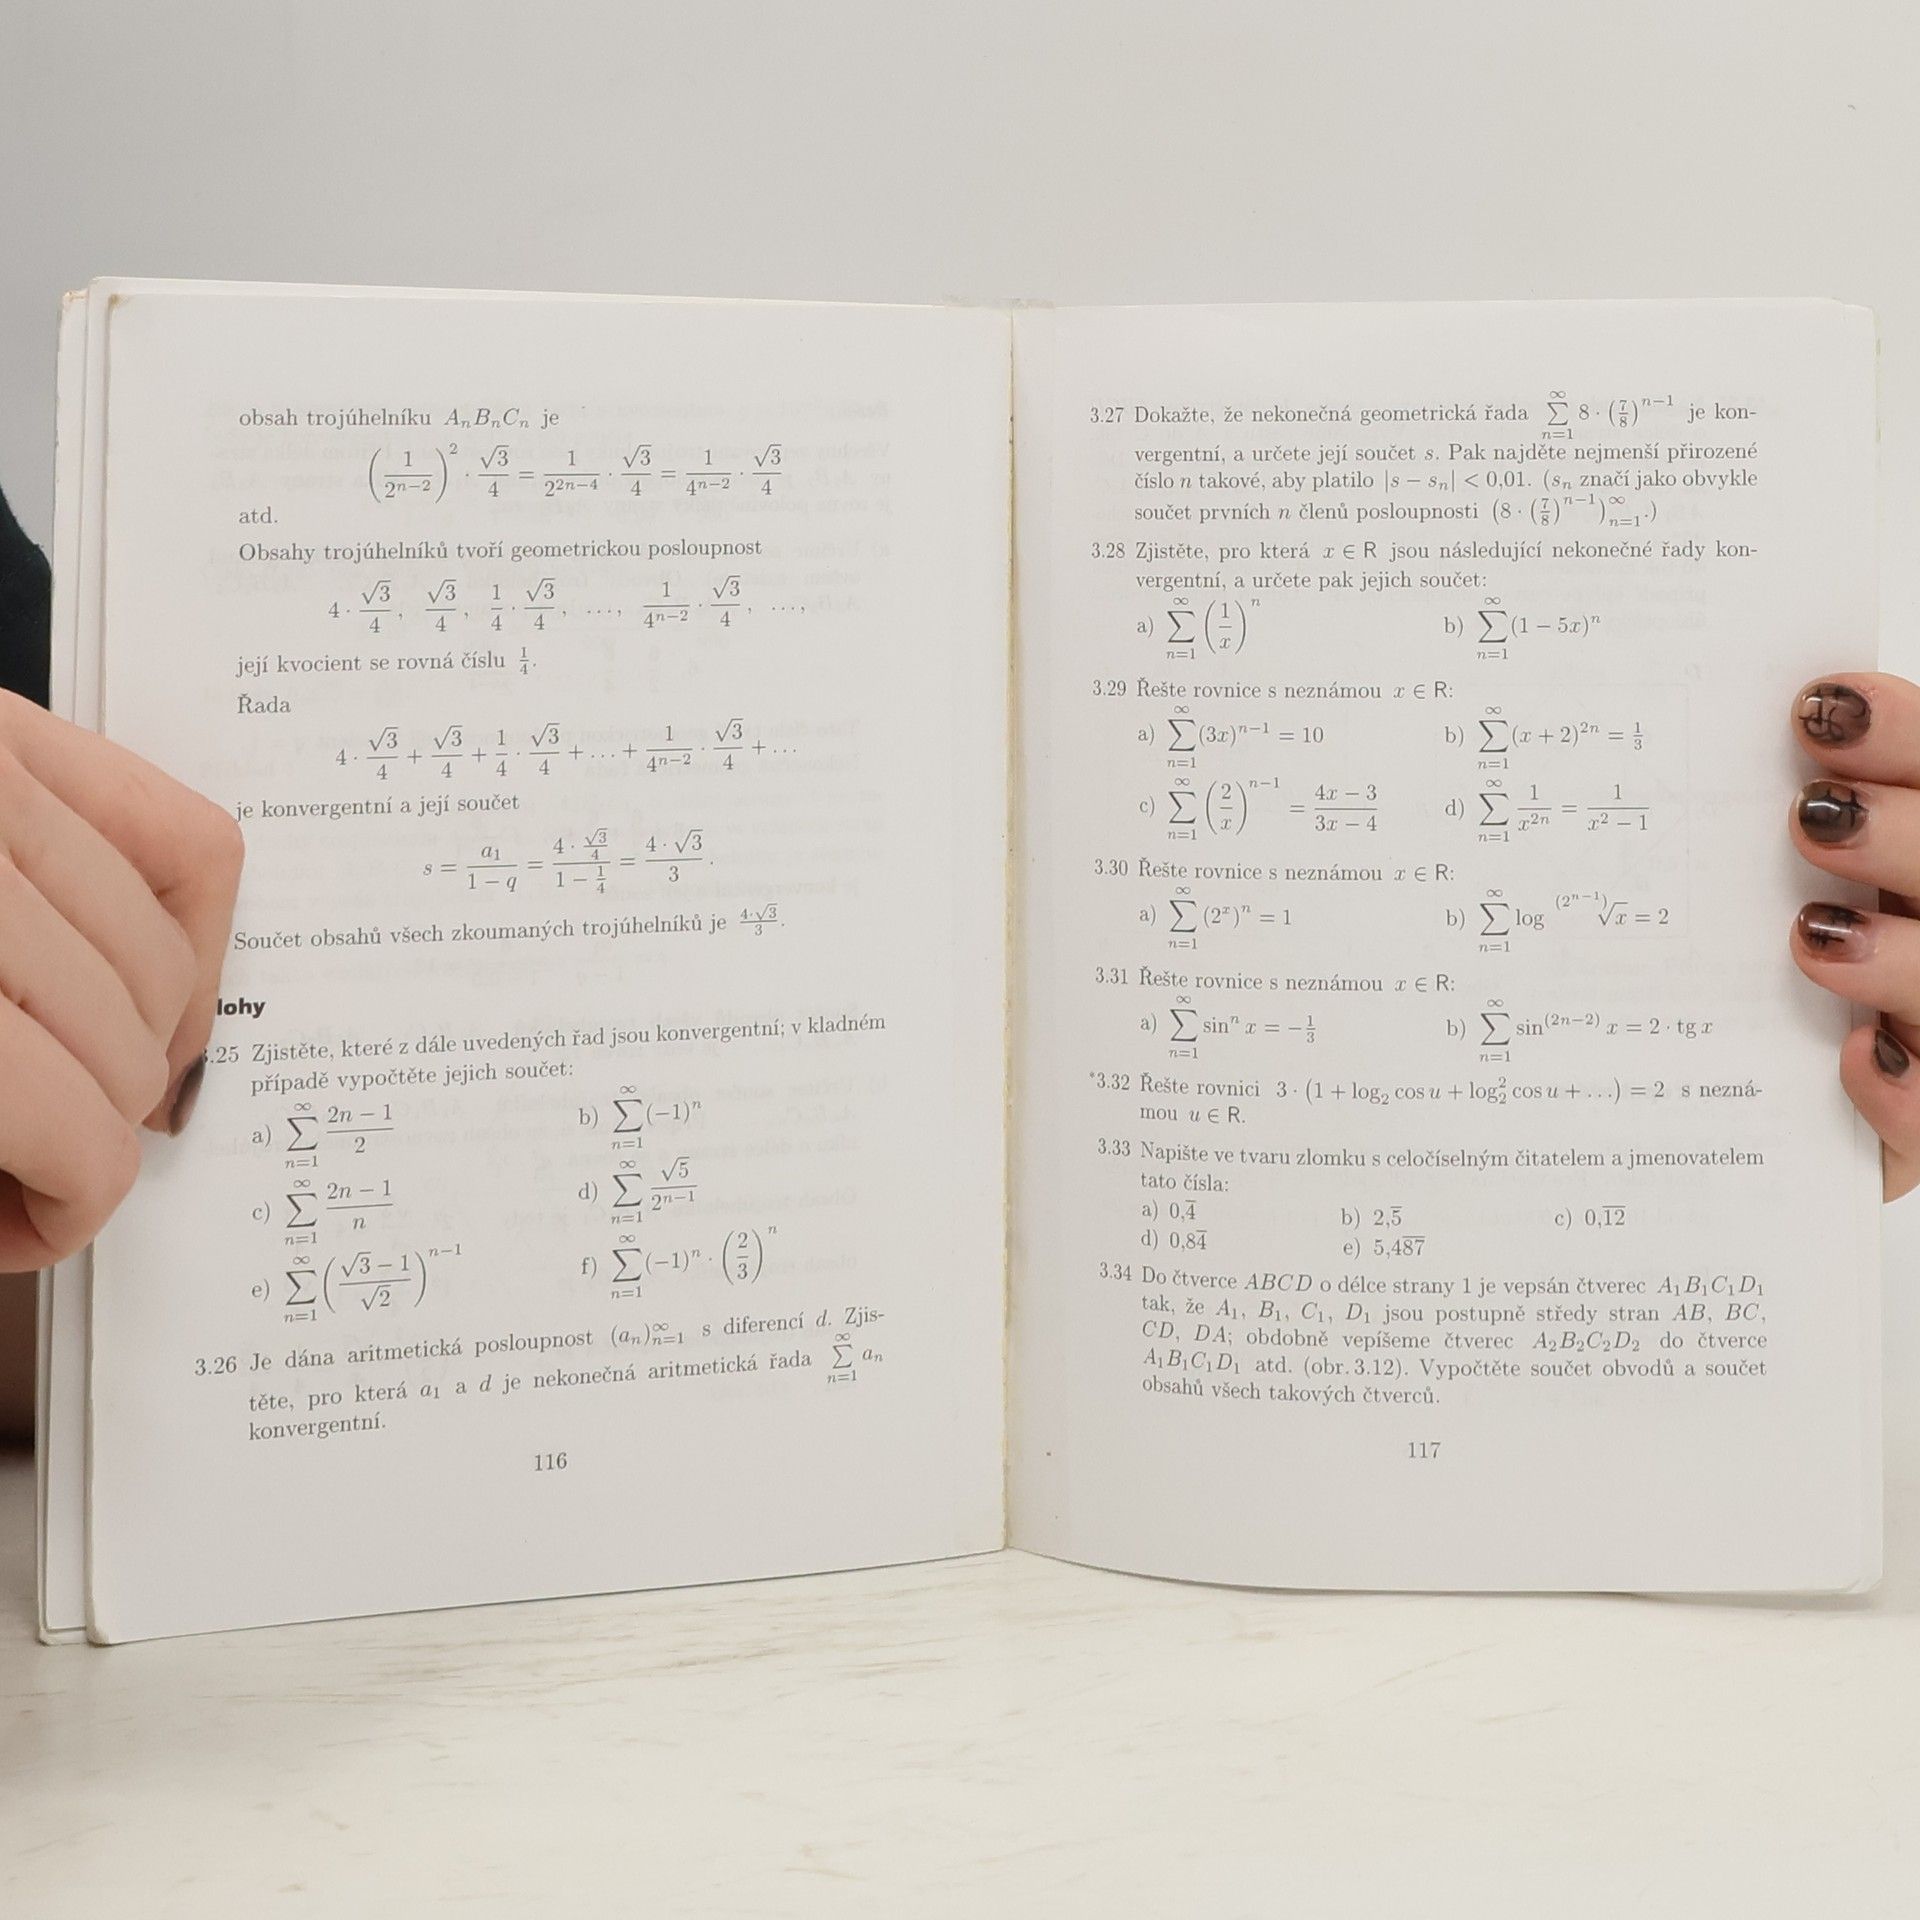 obsah trojúhelníku A_nB_nC_n je
(1/2^{n−2})^2 · √3/4 = 1/2^{2n−4} · √3/4 = 1/4^{n−2} · √3/4
atd.
Obsahy trojúhelníků tvoří geometrickou posloupnost
4 · √3/4, √3/4, 1/4 · √3/4, ..., 1/4^{n−2} · √3/4, ...,
její kvocient se rovná číslu 1/4.
Řada
4 · √3/4 + √3/4 + 1/4 · √3/4 + ... + 1/4^{n−2} · √3/4 + ...
je konvergentní a její součet
s = a_1/(1 − q) = (4 · √3/4)/(1 − 1/4) = (4 · √3)/3.
Součet obsahů všech zkoumaných trojúhelníků je (4·√3)/3.
lohy
.25 Zjistěte, které z dále uvedených řad jsou konvergentní; v kladném
případě vypočtěte jejich součet:
a) ∑_{n=1}^∞ (2n − 1)/2 b) ∑_{n=1}^∞ (−1)^n
c) ∑_{n=1}^∞ (2n − 1)/n d) ∑_{n=1}^∞ √5/2^{n−1}
e) ∑_{n=1}^∞ ((√3 − 1)/√2)^{n−1} f) ∑_{n=1}^∞ (−1)^n · (2/3)^n
3.26 Je dána aritmetická posloupnost (a_n)_{n=1}^∞ s diferencí d. Zjis-
těte, pro která a_1 a d je nekonečná aritmetická řada ∑_{n=1}^∞ a_n
konvergentní.
116
3.27 Dokažte, že nekonečná geometrická řada ∑_{n=1}^∞ 8 · (7/8)^{n−1} je kon-
vergentní, a určete její součet s. Pak najděte nejmenší přirozené
číslo n takové, aby platilo |s − s_n| < 0,01. (s_n značí jako obvykle
součet prvních n členů posloupnosti (8 · (7/8)^{n−1})_{n=1}^∞.)
3.28 Zjistěte, pro která x ∈ R jsou následující nekonečné řady kon-
vergentní, a určete pak jejich součet:
a) ∑_{n=1}^∞ (1/x)^n b) ∑_{n=1}^∞ (1 − 5x)^n
3.29 Řešte rovnice s neznámou x ∈ R:
a) ∑_{n=1}^∞ (3x)^{n−1} = 10 b) ∑_{n=1}^∞ (x + 2)^{2n} = 1/3
c) ∑_{n=1}^∞ (2/x)^{n−1} = (4x − 3)/(3x − 4) d) ∑_{n=1}^∞ 1/x^{2n} = 1/(x^2 − 1)
3.30 Řešte rovnice s neznámou x ∈ R:
a) ∑_{n=1}^∞ (2^x)^n = 1 b) ∑_{n=1}^∞ log ^{(2^{n−1})}√x = 2
3.31 Řešte rovnice s neznámou x ∈ R:
a) ∑_{n=1}^∞ sin^n x = −1/3 b) ∑_{n=1}^∞ sin^{(2n−2)} x = 2 · tg x
*3.32 Řešte rovnici 3 · (1 + log_2 cos u + log_2^2 cos u + ...) = 2 s nezná-
mou u ∈ R.
3.33 Napište ve tvaru zlomku s celočíselným čitatelem a jmenovatelem
tato čísla:
a) 0,4̅ b) 2,5̅ c) 0,1̅2̅
d) 0,84̅ e) 5,48̅7̅
3.34 Do čtverce ABCD o délce strany 1 je vepsán čtverec A_1B_1C_1D_1
tak, že A_1, B_1, C_1, D_1 jsou postupně středy stran AB, BC,
CD, DA; obdobně vepíšeme čtverec A_2B_2C_2D_2 do čtverce
A_1B_1C_1D_1 atd. (obr. 3.12). Vypočtěte součet obvodů a součet
obsahů všech takových čtverců.
117